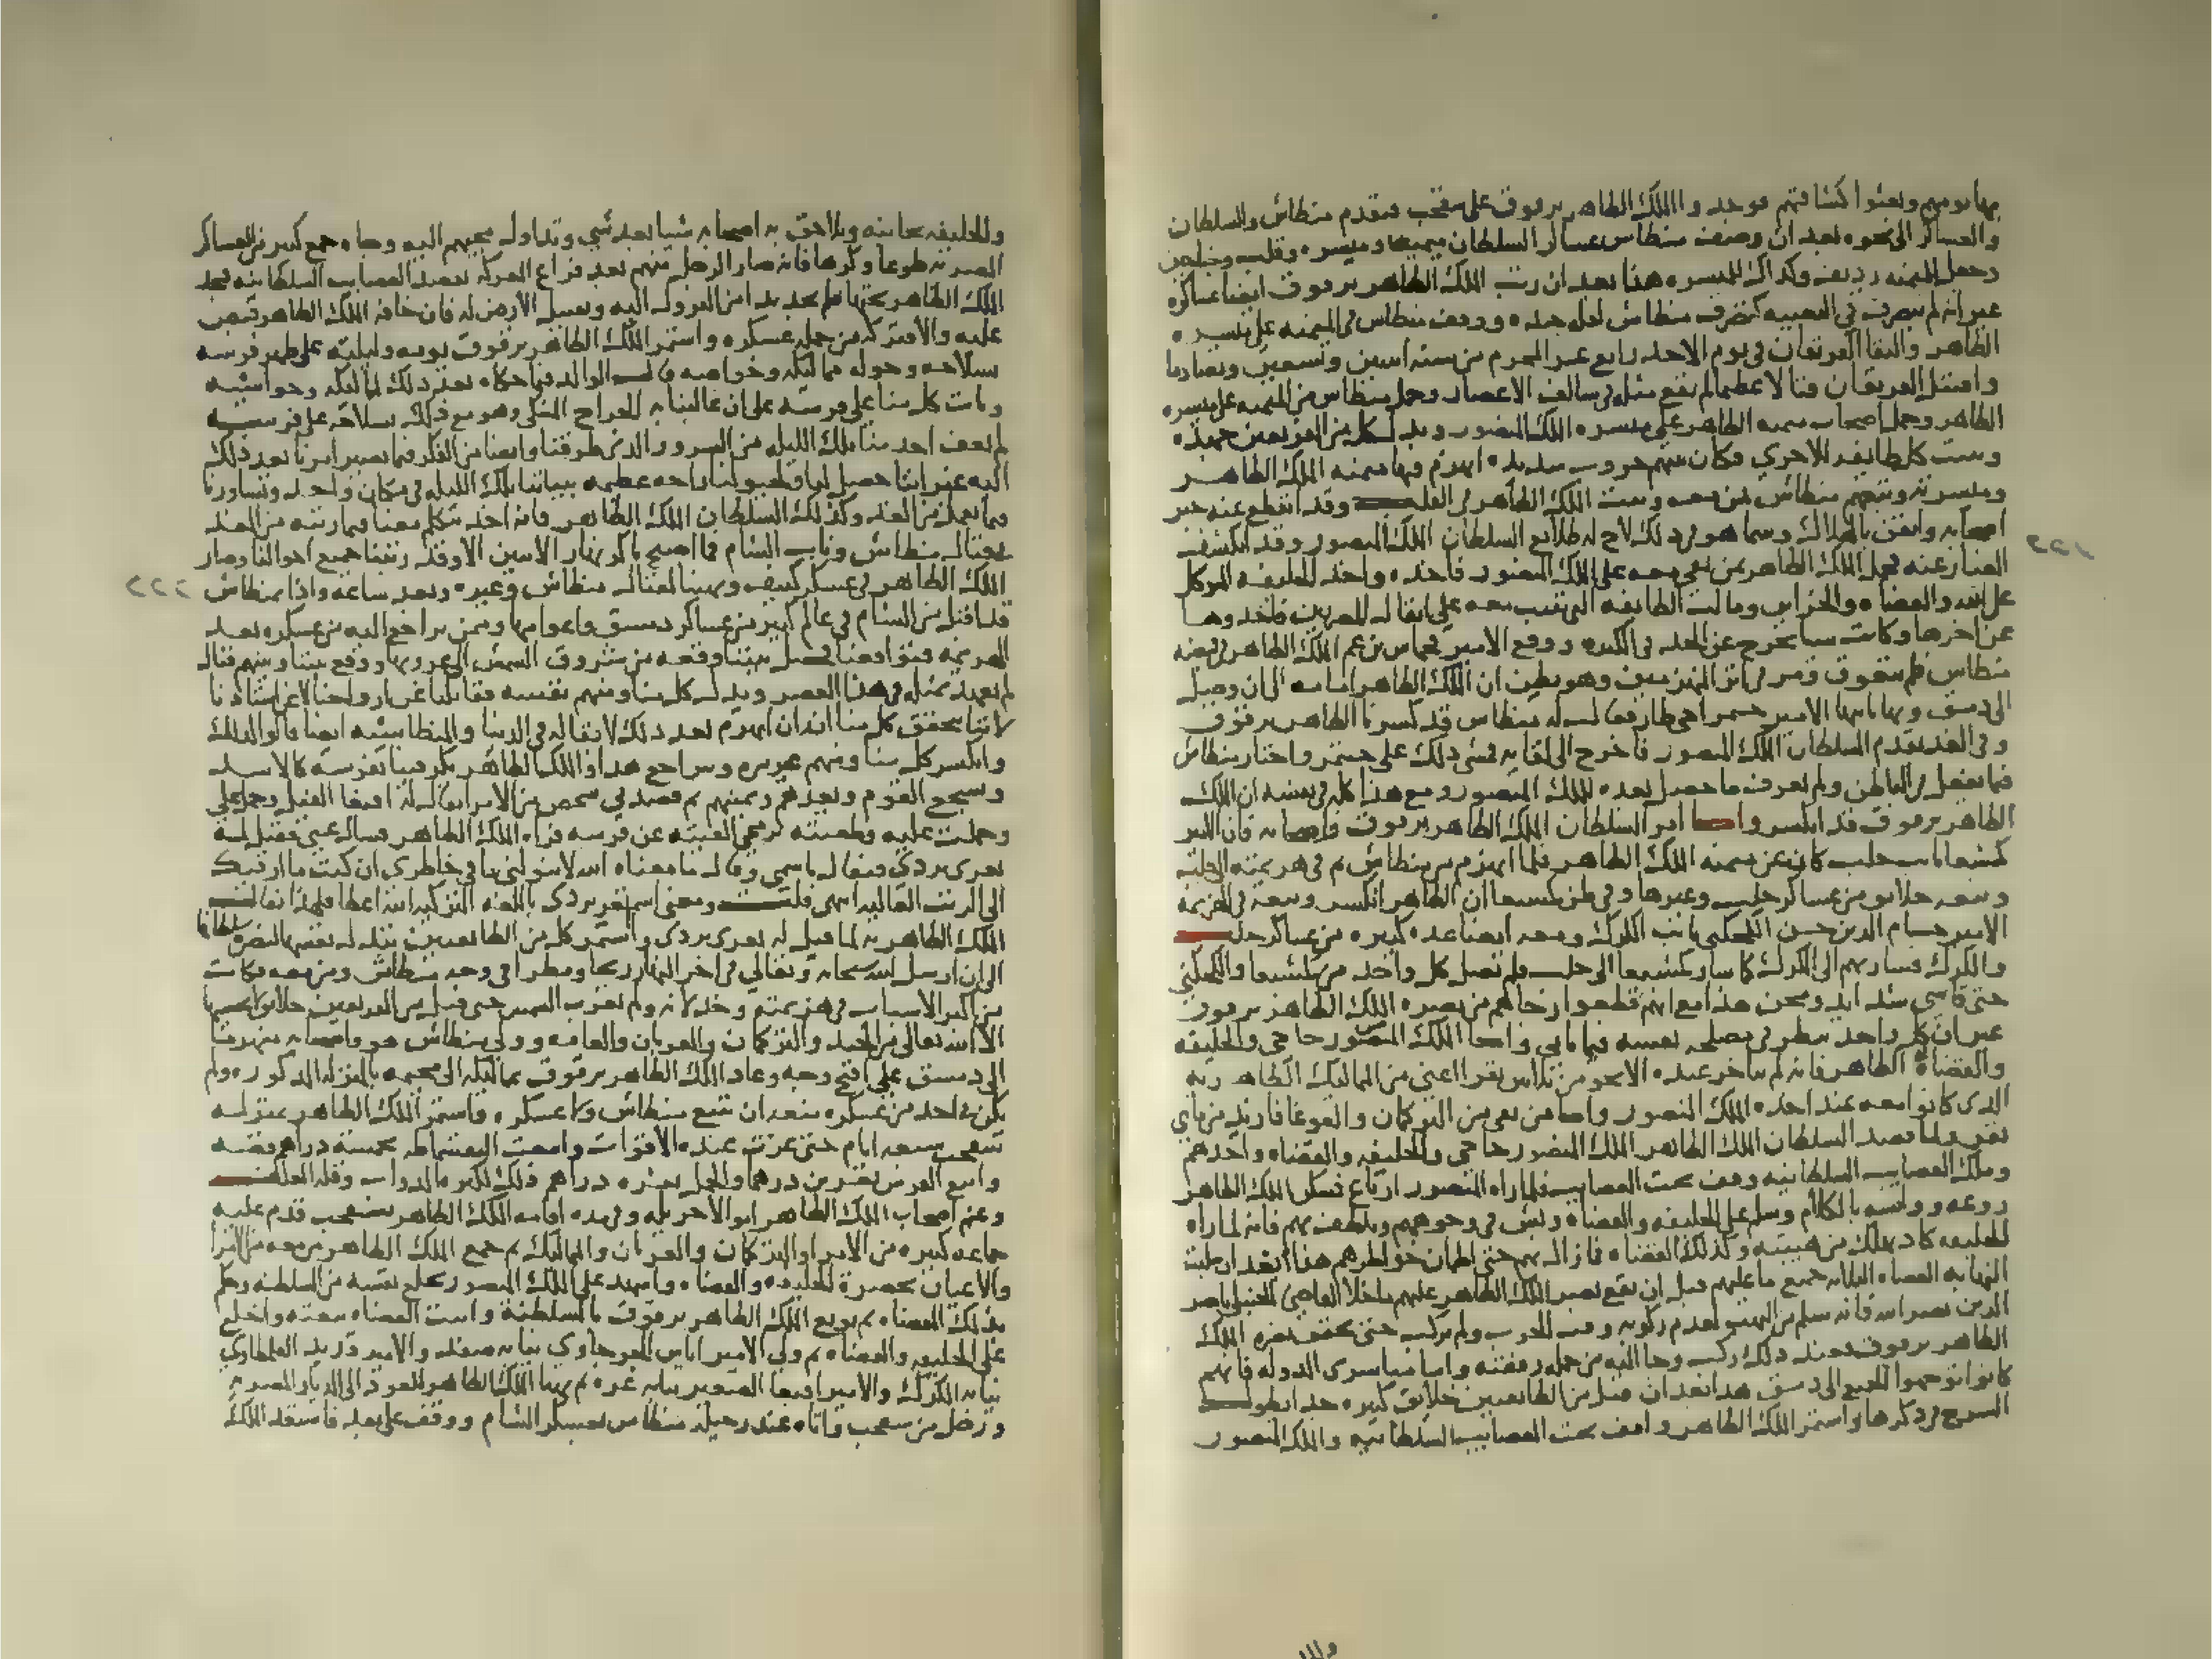 بها يومهم وبعثوا كشافتهم فوجدوا الملك الظاهر برقوق على شقحب فتقدم منطاش والسلطان
والعساكر الى نحوه بعد ان وصف منطاش عساكر السلطان ميمنة وميسره وقلب وجناحين
وجعل للميمنه رديف وكذلك للميسره هذا بعد ان رتب الملك الظاهر برقوق ايضا عساكره
غير انه لم يتصرف في التعبيه كتصرف منطاش ووقف منطاش في الميمنه على ميسره
الظاهر والتقا الفريقان في يوم الاحد رابع عشر المحرم من سنه اثنين وتسعين وتصادما
واقتتل الفريقان قتالا عظيما لم يقع مثله في سالف الاعصار وحمل منطاش من الميمنه على ميسره
الظاهر وحمل اصحاب ميمنه الظاهر على ميسره الملك المنصور وبذل كل من الفريقين جهده
وثبت كل طايفه للاخرى فكان بينهم حروب شديده انهزم فيها ميمنه الملك الظاهر
وميسرته وتبعهم منطاش بمن معه وثبت الملك الظاهر في القلب وقد انقطع عنه خبر
اصحابه وايقن بالهلاك وبينما هو في ذلك لاح له طلايع السلطان الملك المنصور وقد انكشف
الغبار عنه فحمل الملك الظاهر بمن بقي معه على الملك المنصور فاخذه واخذ الخليفه المتوكل
على الله والقضاه والخزاين ومالت الطايفه التي ثبتت معه على اثقال المصريين فاخذوها
عن اخرها وكانت شيا يخرج عن الحد في الكثره ووقع الامير قجماس بن عم الملك الظاهر في قبضه
منطاش فلم يتعوق ومر في اثر المنهزمين وهو يظن ان الملك الظاهر امامه الى ان وصل
الى دمشق وبها نايبها الامير جنتمر اخي طاز فقال له منطاش قد كسرنا الظاهر برقوق
وفي الغد يقدم السلطان الملك المنصور فاخرج الى لقايه فمشى ذلك على جنتمر واحتار منطاش
فيما يفعل في الباطن ولم يعرف ما حصل بعده للملك المنصور ومع هذا كله في نفسه ان الملك
الظاهر برقوق قد انكسر واما امر السلطان الملك الظاهر برقوق واصحابه فان الامير
كمشبغا نايب حلب كان عن ميمنه الملك الظاهر فلما انهزم من منطاش تم في هزيمته الى حلب
وتبعه خلايق من عساكر حلب وغيرها وفي ظن كمشبغا ان الظاهر انكسر وتبعه في الهزيمه
الامير حسام الدين حسن الكجكني نايب الكرك ومعه ايضا عده كبيره من عساكر حلب
والكرك فسار بهم الى الكرك كما سار كمشبغا الى حلب فلم يصل كل واحد من كمشبغا والكجكني
حتى قاسى شدايد ومحن هذا مع انهم قطعوا رجاهم من نصره الملك الظاهر برقوق
غير ان كل واحد ينظر في مصلحه نفسه فيما ياتي واما الملك المنصور حاجي والخليفه
والقضاه الظاهر فانه لم يتاخر عنده الا نحو من ثلاثين نفرا اعني من المماليك الظاهريه
الذي كانوا معه عند اخذه الملك المنصور واما من بقي من التركمان والغوغا فازيد من مايتي
نفر ولما قصد السلطان الملك الظاهر الملك المنصور حاجي والخليفه والقضاه واخذهم
وملك العصايب السلطانيه وقف تحت العصايب فلما راه المنصور ارتاع فسكن الملك الظاهر
روعه وانسه بالكلام وسلم على الخليفه والقضاه وبش في وجوههم وتلطف بهم فانه لما راه
الخليفه كاد يهلك من هيبته وكذلك القضاه فما زال بهم حتى اطمان خواطرهم هذا بعد ان سلبت
النهابه القضاه الثلاثه جميع ما عليهم قبل ان يقع نصر الملك الظاهر عليهم ما خلا القاضي الحنبلي ناصر
الدين نصر الله فانه سلم من النهب لعدم ركوبه وقت الحرب ولم يركب حتى تحقق نصره الملك
الظاهر برقوق فعند ذلك ركب وجا اليه من جمله رفقته واما مباشرى الدوله فانهم
كانوا توجهوا الجميع الى دمشق هذا بعد ان قتل من الطايفتين خلايق كثيره جدا يطول
الشرح في ذكرها واستمر الملك الظاهر واقف تحت العصايب السلطانيه والملك المنصور
والخليفه بجانبه وتلاحق به اصحابه شيا بعد شي وتداول مجيهم اليه وجاه جمع كبير من العساكر
المصريه طوعا وكرها فانه صار الرجل منهم بعد فراغ المعركه يقصد العصايب السلطانيه فيجد
الملك الظاهر تحتها فلم يجد بدا من النزول اليه وتقبيل الارض له فان خافه الملك الظاهر قبض
عليه والا تركه من جمله عسكره واستمر الملك الظاهر برقوق يومه وليلته على ظهر فرسه
بسلاحه وحوله مماليكه وخواصه قال الوالد فيما حكاه بعد ذلك لمماليكه وحواشيه
وبات كل منا على فرسه على ان غالبنا به الجراح المنكي وهو مع ذلك بسلاحه على فرسه
لم يغف احد منا تلك الليله من السرور الذي طرقنا وايضا من الفكر فيما يصير امرنا بعد ذلك
اليه غير اننا حصل لنا ولخيولنا راحه عظيمه ببياتنا تلك الليله في مكان واحد وتشاورنا
فيما نفعل من الغد وكذلك السلطان الملك الظاهر فانه اخذ يتكلم معنا فيما رتبه من الغد
لقتال منطاش ونايب الشام فما اصبح باكر نهار الاثنين الا وقد رتبنا جميع احوالنا وصار
الملك الظاهر في عسكر كثيف وتهيئا لقتال منطاش وغيره وبعد ساعه واذا بمنطاش
قد اقبل من الشام في عالم كبير من عساكر دمشق وعوامها وممن تراجع اليه من عسكره بعد
الهزيمه فتواقعنا فحصل بيننا وقعه من شروق الشمس الى غروبها ووقع بيننا وبينهم قتال
لم يعهد بمثله في هذا العصر وبذل كل منا ومنهم نفسه فقاتلنا عن ارواحنا لا عن استاذنا
لاننا تحقق كل منا انه ان انهزم بعد ذلك لا بقا له في الدنيا والمنطاشيه ايضا قالوا كذلك
وانكسر كل منا ومنهم غير مره وتراجع هذا والملك الظاهر يكر فينا بفرسه كالاسد
ويشجع القوم ويعدهم ويمنيهم ثم قصدني شخص من الامرا يقال له اقبغا الفيل وحمل علي
وحملت عليه وطعنته برمحي القيته عن فرسه فراه الملك الظاهر فسال عني فقيل له
تغري بردي فتفال باسمي وقال ما معناه الله لا ينولني ما في خاطري ان كنت ما ارقيك
الى الرتب العاليه انتهى قلت ومعنى اسم تغري بردي باللغه التركيه الله اعطا فلهذا تفال
الملك الظاهر به لما قيل له تغري بردي واستمر كل من الطايفتين تبذل نفسها لنصره سلطانها
الى ان ارسل الله سبحانه وتعالى في اخر النهار ريحا ومطرا في وجه منطاش ومن معه فكانت
من اكبر الاسباب في هزيمته وخذلانه ولم تغرب الشمس حتى قتل من الفريقين خلايق لا يحصيها
الا الله تعالى من الجند والتركمان والعربان والعامه وولى منطاش هو واصحابه منهزما
الى دمشق على اقبح وجه وعاد الملك الظاهر برقوق بمماليكه الى مخيمه بالمنزله المذكوره ولم
يكن في احد من عسكره منعه ان يتبع منطاش وعسكره فاستمر الملك الظاهر بمنزله
شقحب سبعه ايام حتى عزت عنده الاقوات وابيعت البقسماطه بخمسه دراهم فضه
وابيع الفرس بعشرين درهما والجمل بعشره دراهم وذلك لكثره الدواب وقله العلف
وغنم اصحاب الملك الظاهر اموالا جزيله وفي مده اقامه الملك الظاهر بشقحب قدم عليه
جماعه كبيره من الامرا والتركمان والعربان والمماليك ثم جمع الملك الظاهر من معه من الامرا
والاعيان بحضرة الخليفه والقضاه واشهد على الملك المنصور بخلع نفسه من السلطنه وحكم
بذلك القضاه ثم بويع الملك الظاهر برقوق بالسلطنة واثبت القضاه بيعته واخلع
على الخليفه والقضاه ثم ولى الامير اياس الجرجاوي نيابه صفد والامير قديد القلمطاوي
نيابه الكرك والامير اقبغا الصغير نيابه غزه ثم تهيا الملك الظاهر للعود الى الديار المصريه
ورحل من شقحب واتاه عند رحيله منطاش بعسكر الشام ووقف على بعد فاستعد الملك